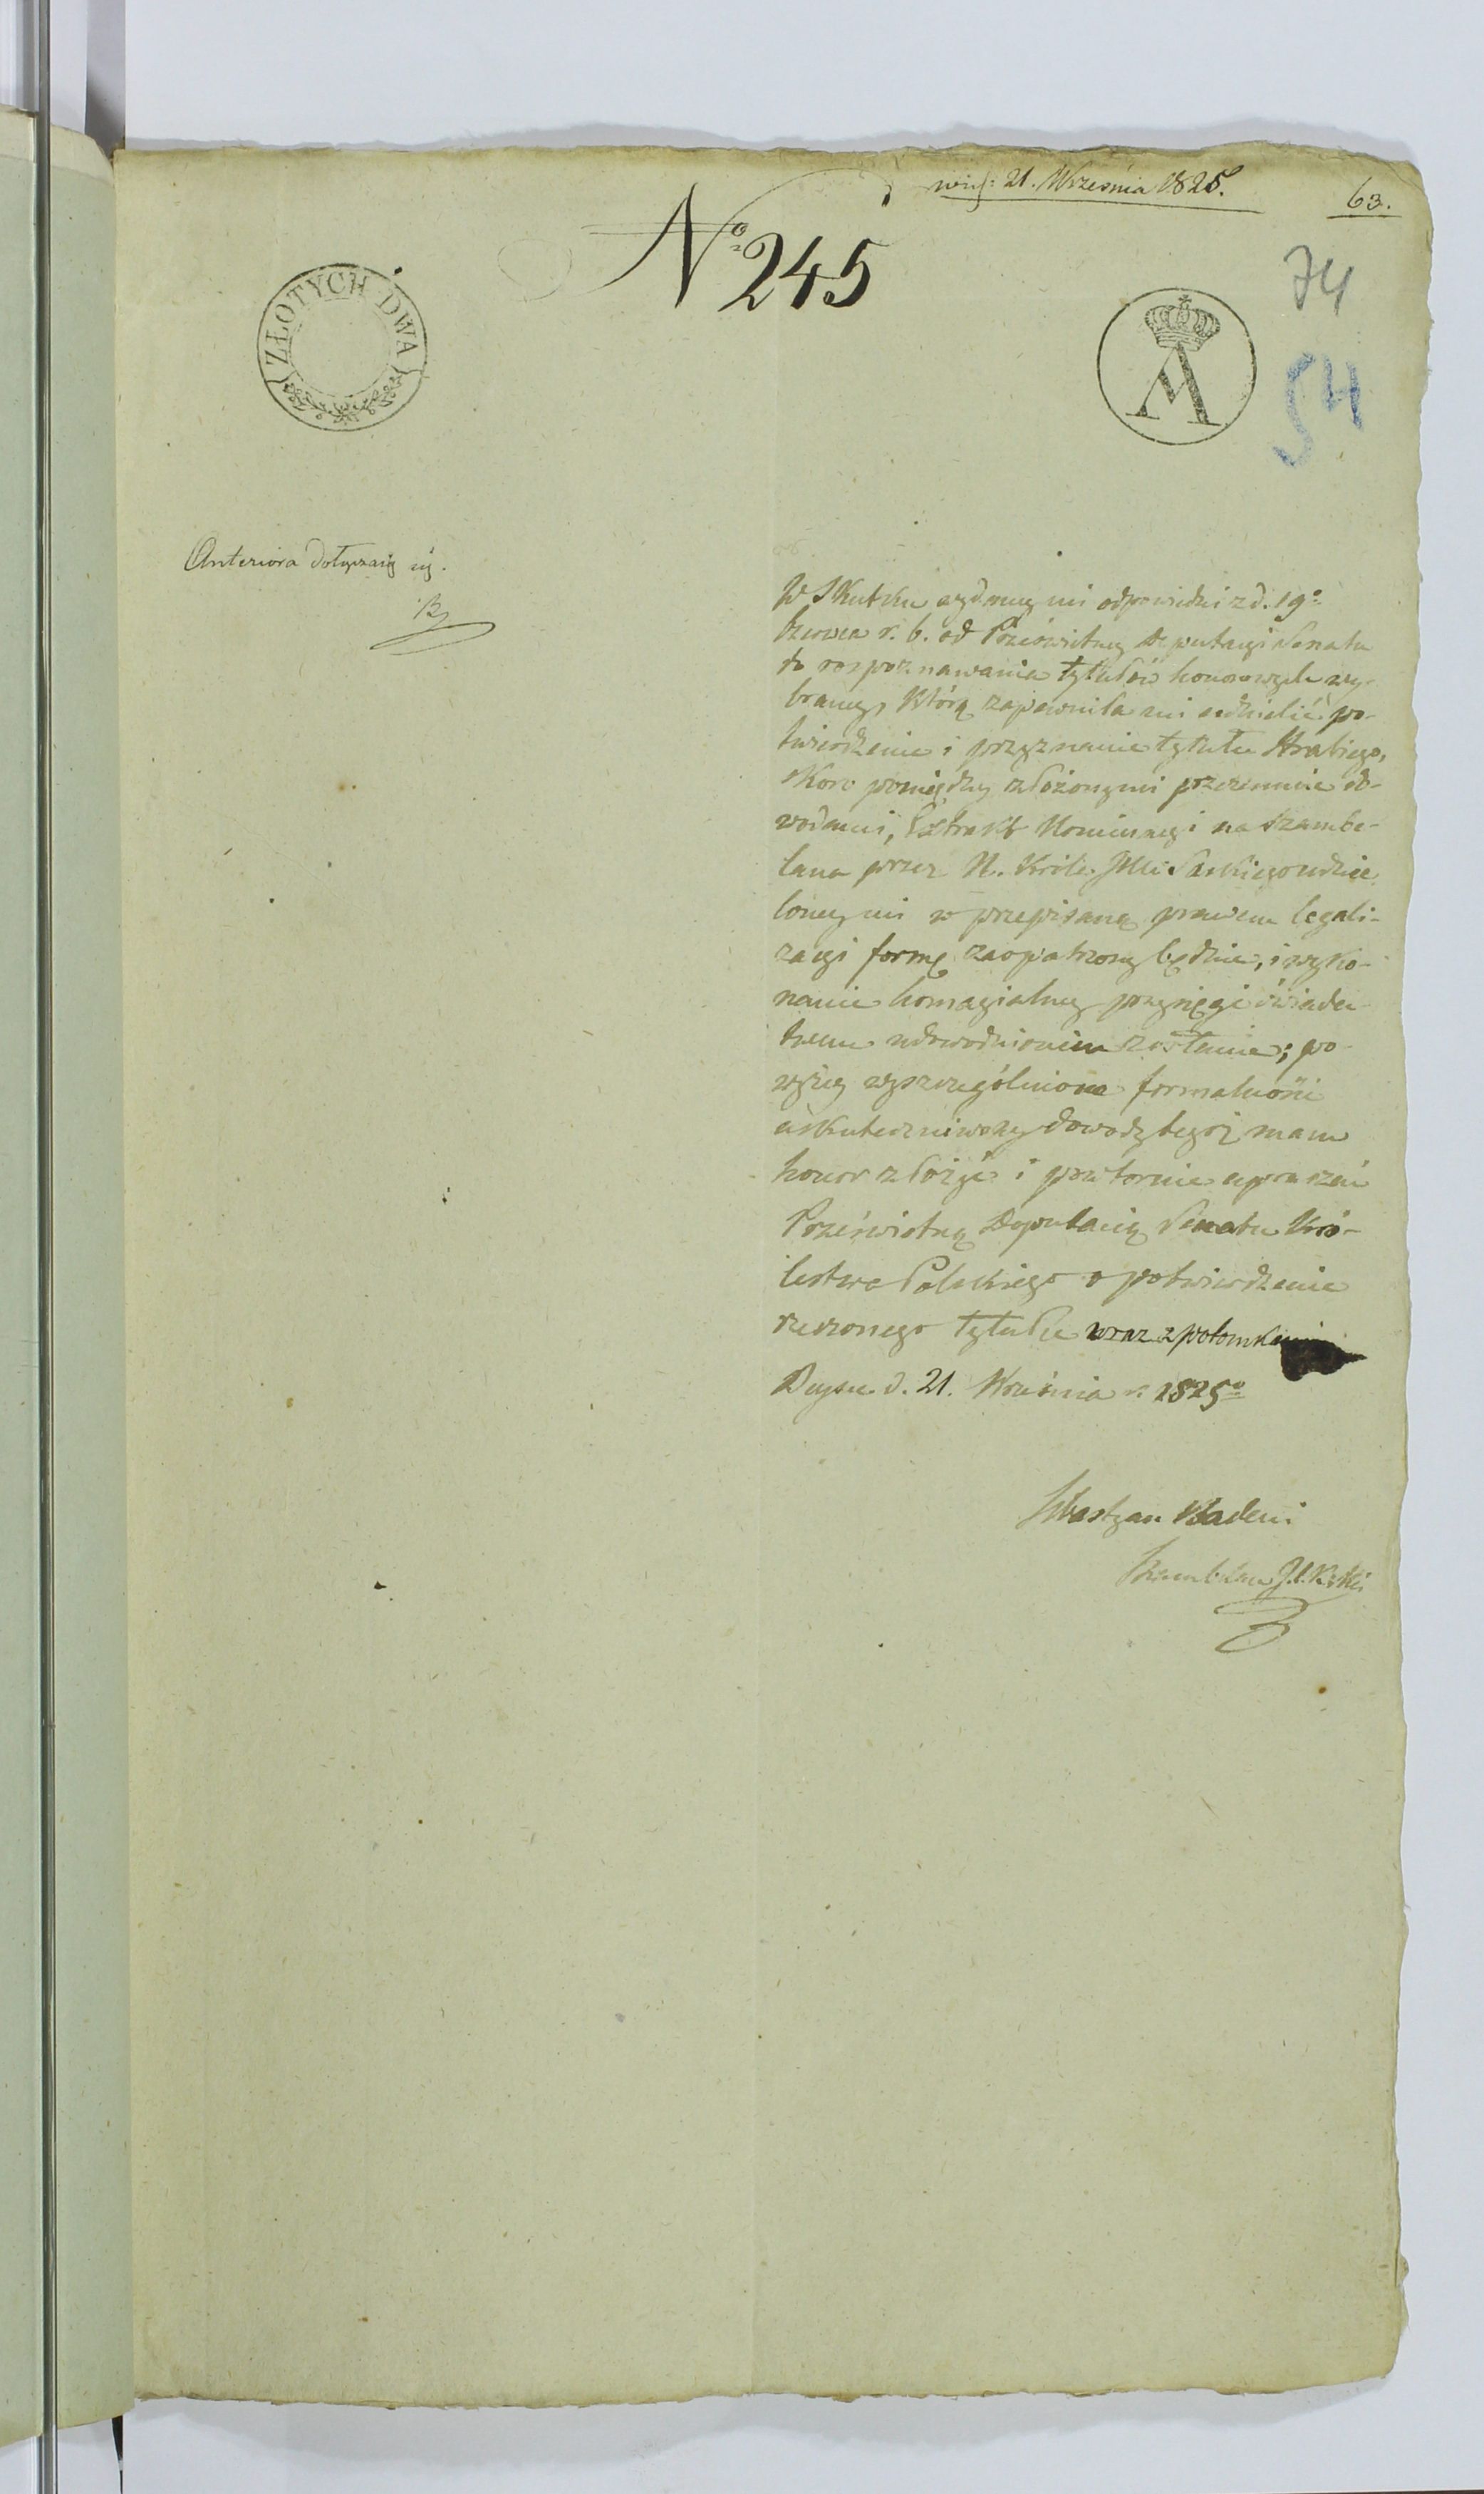 wnij: 21. Września 1825.
63.
No 245
74
ZŁOTYCH DWA
A
54
Anteriora dołączają się.
W Skutku wydaney mi odpowiedzi z d. 19o
Czerwca r. b. od Prześwietney Deputacyi Senatu
do rospoznawania tytułów honorowych wy-
braney, którą zapewniła mi udzielić po-
twierdzenie i przyznanie tytułu Hrabiego,
skoro pomiędzy złożonymi przezemnie do-
wodami, Extrakt Nominacyi na Szambe-
lana przez N. Króla JMci Saskiego udzie
loney mi w przepisaną prawem legali-
zacyi formę zaopatrzony będzie, i wyko-
nanie homagialney przysięgi świadec-
twem udowodnionem zostanie; po-
wyżey wyszczególnione formalności
uskuteczniwszy dowody tegoż mam
honor złożyć i powtornie upraszać
Prześwietną Deputacią Senatu Kró-
lestwa Polskiego o potwierdzenie
rzeczonego tytułu wraz z potomkami
Busku d. 21. Września r. 1825o
Sebastyan Badeni
Szambelan J. K. Mci